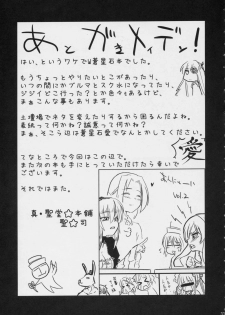 あとがきメイデン!
はい、というワケでW蒼星石本でした。
もうちょっとやりたいとこがあったり、
いつの間にかブルマとスク水になってたり
ジジイどこ行った?とか色々あるけど、
まぁこんな事もあります。
土壇場でネタを変えたりするから困るんだよね。
表紙って何だ?誠意って何だ?
まぁ、そこら辺は蒼星石愛でなんとかしてください。
愛
てなところで今回はこの辺で。
またなの本も手にとっていただけたら幸いで
ございます。
それではまた。
真・聖堂☆本舗
聖☆司
vol.2